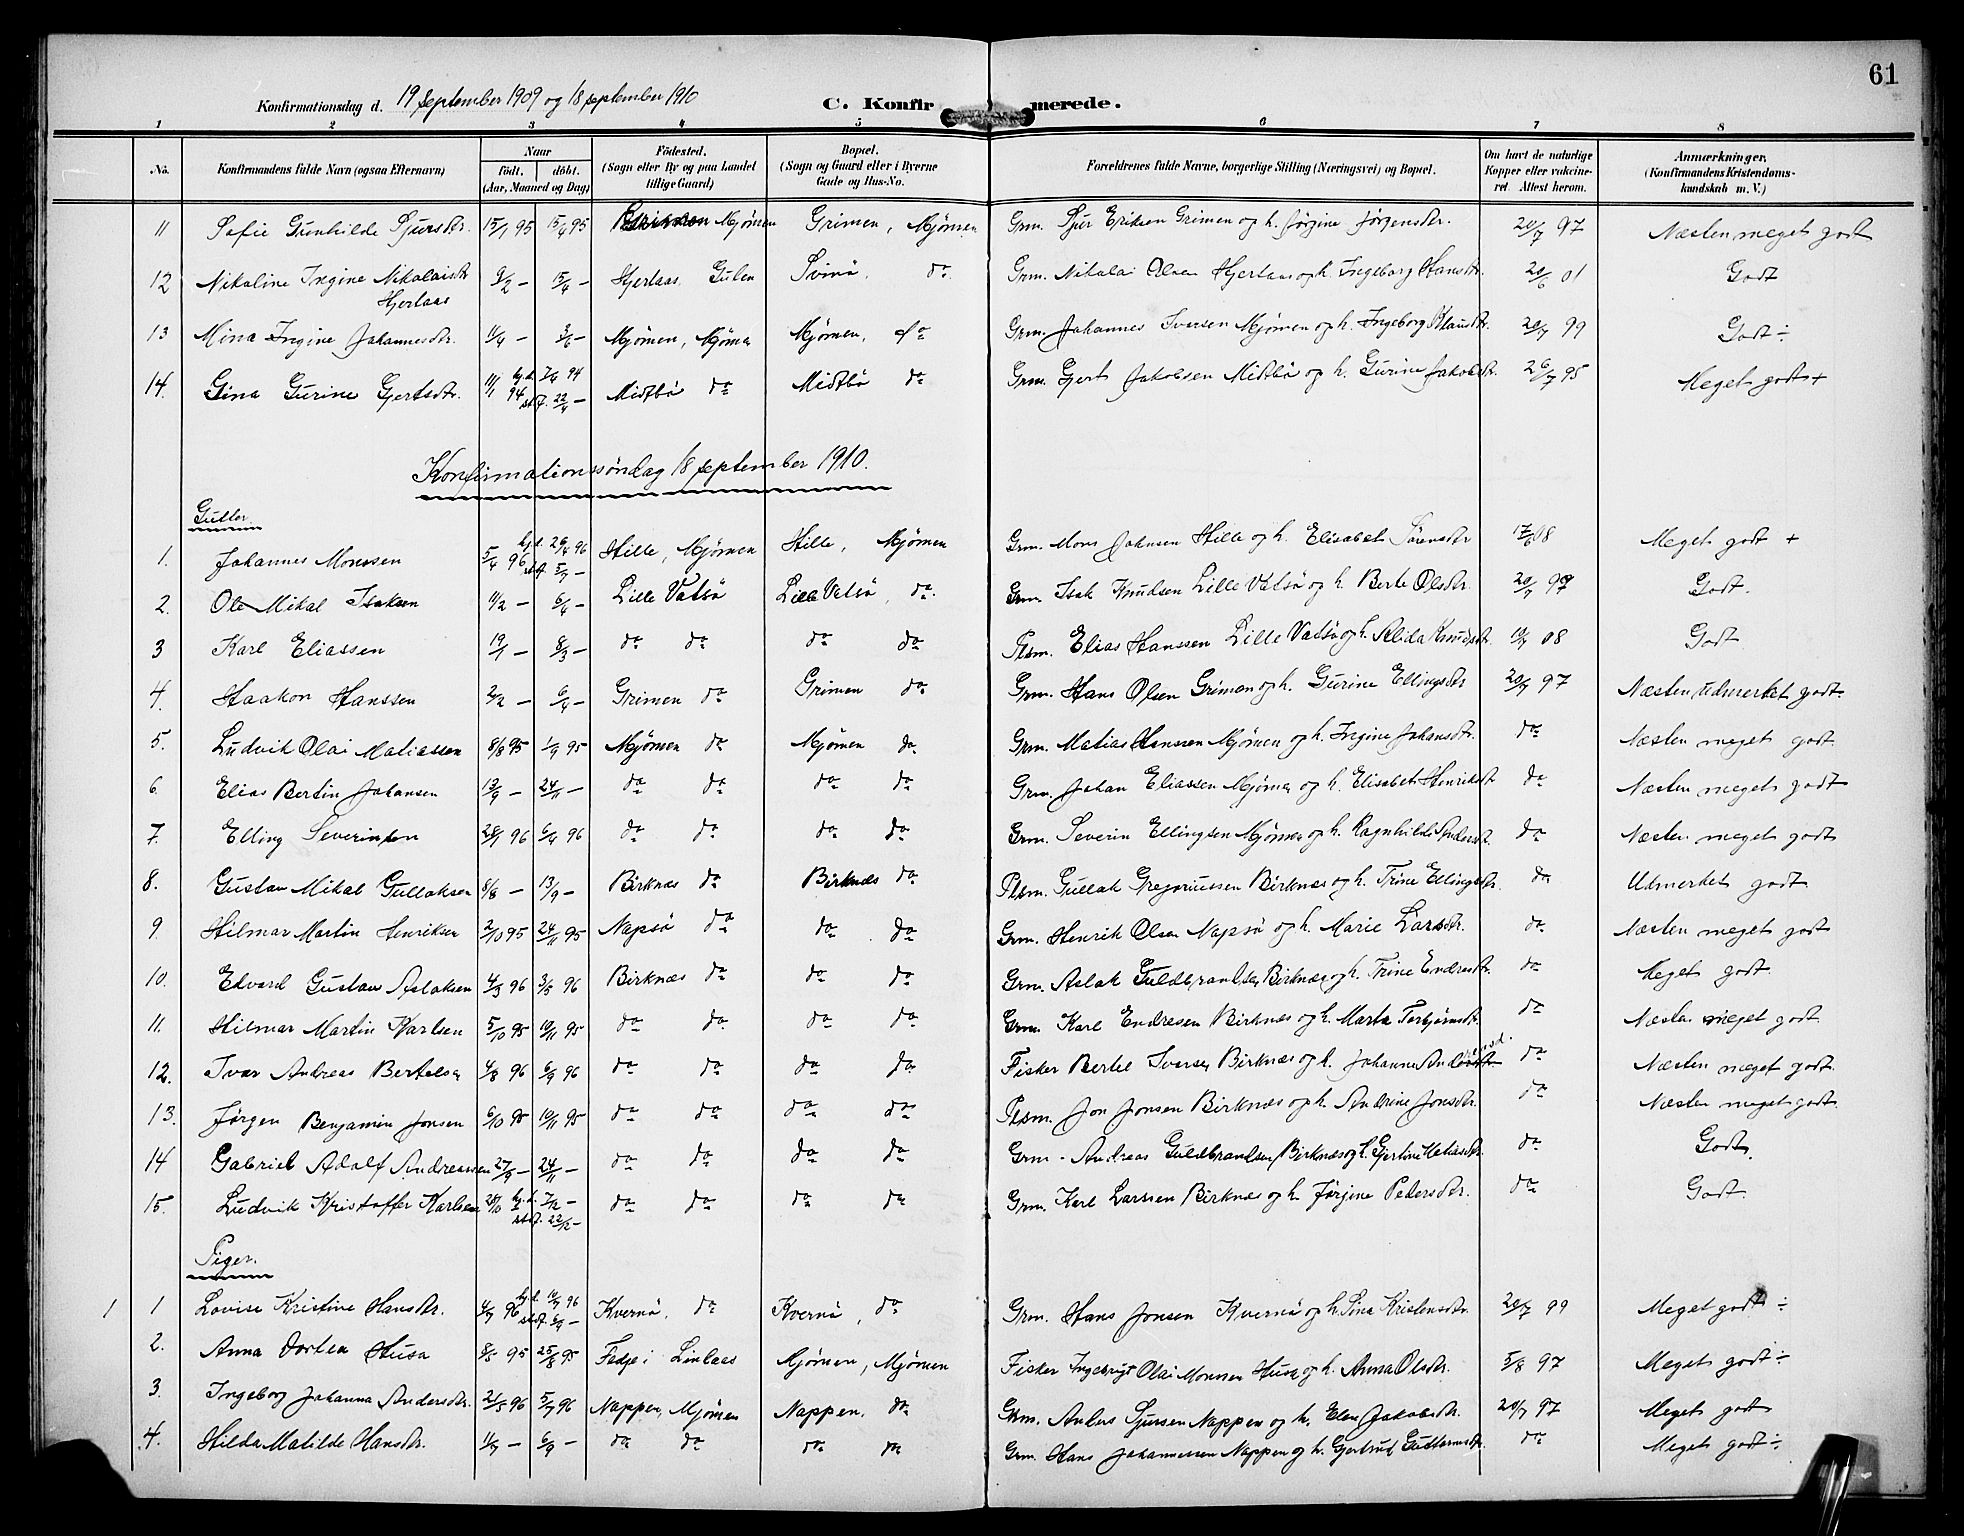 61
Konfirmationsdag d. 19 september 1909 og 18 september 1910 C. Konfirmerede.
1 2 3 4 5 6 7 8
No. Konfirmandens fulde Navn (ogsaa Efternavn) Naar født. døbt. (Aar, Maaned og Dag) Fødested. (Sogn eller By og paa Landet tillige Gaard) Bopæl. (Sogn og Gaard eller i Byerne Gade og Hus-No. Forældrenes fulde Navne, borgerlige Stilling (Næringsvei) og Bopæl. Om havt de naturlige Kopper eller vakcineret. Attest herom. Anmærkninger. (Konfirmandens Kristendomskundskab m. V.)
11 Sofie Gunhilde Sjursdtr. 15/1 95 15/4 95 Mjömen Grimen, Mjömen Grm. Sjur Eriksen Grimen og h. Jørgine Jørgensdtr. 20/7 97 Næsten meget godt
12 Nikoline Ingine Nikolaisdtr Hjertaas 9/2 — 15/4 — Hjertaas Gulen Svinö, do Grm. Nikolai Olsen Hjertaas og h. Ingeborg Hansdtr. 20/6 01 Godt
13 Mina Ingine Johannesdtr. 11/4 — 3/6 — Mjömen, Mjömen Mjömen, do Grm. Johannes Iversen Mjömen og h. Ingeborg Klausdtr. 20/7 99 Godt ÷
14. Gina Gurine Gjertsdtr. 11/1 94 hj.d. 7/4 94 st.f. 22/4 — Midtbö do Midtbö do Grm. Gjert Jakobsen Midtbö og h. Gurine Jakobsdtr. 26/7 95 Meget godt +
Konfirmationssöndag 18 september 1910.
Gutter.
1. Johannes Monssen 5/4 96 hj.d. 26/4 96 st.f. 5/7 — Hille, Mjömen Hille, Mjömen Grm. Mons Johnsen Hille og h. Elisabet Sörensdtr 17/6 08 Meget godt +
2. Ole Mikal Isaksen 11/2 — 6/4 — Lille Vatsö Lille Vatsö, do Grm. Isak Knudsen Lille Vatsö og h. Berte Olsdtr. 20/7 97 Godt.
3 Karl Eliassen 19/1 — 8/3 — do do do do Plsm. Elias Hanssen Lille Vatsö og h. Alida Knudsdtr. 08 Godt
4. Haakon Hanssen 2/2 — 6/4 — Grimen do Grimen do Grm. Hans Olsen Grimen og h. Gurine Ellingsdtr 20/7 97 Næsten Udmerket godt.
5. Ludvik Olai Matiassen 8/8 95 1/9 95 Mjömen do Mjömen do Grm. Matias Hanssen Mjömen og h. Ingine Johansdtr. do Næsten meget godt
6 Elias Bertin Johansen 13/9 — 24/11 — do do do do Grm. Johan Eliassen Mjömen og h. Elisabet Henriksdtr do Næsten meget godt
7. Elling Severinsen 28/1 96 6/4 96 do do do do Grm. Severin Ellingsen Mjömen og h. Ragnhilde Andersdtr. do Næsten meget godt
8. Gustav Mikal Gullaksen 8/8 — 13/9 — Birknæs do Birknæs do Plsm. Gullak Gregoriussen Birknæs og h. Trine Ellingsdtr. do Udmerket godt
9. Hilmar Martin Henriksen 2/10 95 24/11 95 Napsö do do do Grm. Henrik Olsen Napsö og h. Marie Larsdtr. do Næsten meget godt
10. Edvard Gustav Aslaksen 4/3 96 3/5 96 Birknæs do do do Grm. Aslak Guldbrandsen Birknæs og h. Trine Endresdtr. do Meget godt
11. Hilmar Martin Karlsen 5/10 95 10/11 95 do do do do Grm. Karl Endresen Birknæs og h. Marta Torbjørnsdtr. do Næsten meget godt
12. Ivar Andreas Bertelsen 4/8 96 6/9 96 do do do do Fisker Bertel Iversen Birknæs og h. Johanne do Næsten meget godt
13. Jørgen Benjamin Jonsen 6/10 95 10/11 95 do do do do Plsm. Jon Jonsen Birknæs og h. Andrine Jonsdtr. do Næsten meget godt
14 Gabriel Adolf Andreassen 27/9 — 24/11 — do do do do Grm. Andreas Guldbrandsen Birknæs og h. Gjertine Matiasdtr. do Godt.
15. Ludvik Kristoffer Karlsen 28/10 hj.d. 7/12 — st.f. 22/12 — do do do do Grm. Karl Larssen Birknæs og h. Jørgine Pedersdtr. do Godt
Piger.
1 1 Lovise Kristine Hansdtr. 4/7 96 hj.d. 14/7 96 st.f. 6/9 — Kvernö, do Kvernö, do Grm. Hans Jonsen Kvernö og h. Sina Kristensdtr. 20/7 99 Meget godt ÷
2. Anna Dortea Husa 8/5 95 25/8 95 Fedje i Linlaas Mjömen, Mjömen Fisker Ingebrigt Olai Monssen Husa og h. Anna Olsdtr. 5/8 97 Meget godt ÷
3. Ingeborg Johanna Andersdtr. 21/5 96 5/7 96 Nappen, Mjömen Nappen. do Grm. Anders Sjursen Nappen og h. Elen Jakobsdtr. 20/7 97 Meget godt
4. Hilda Matilde Hansdtr. 11/7 — 6/9 — do do do do Grm. Hans Johannessen Nappen og h. Gjertrud Guttormsdtr. do Meget godt ÷